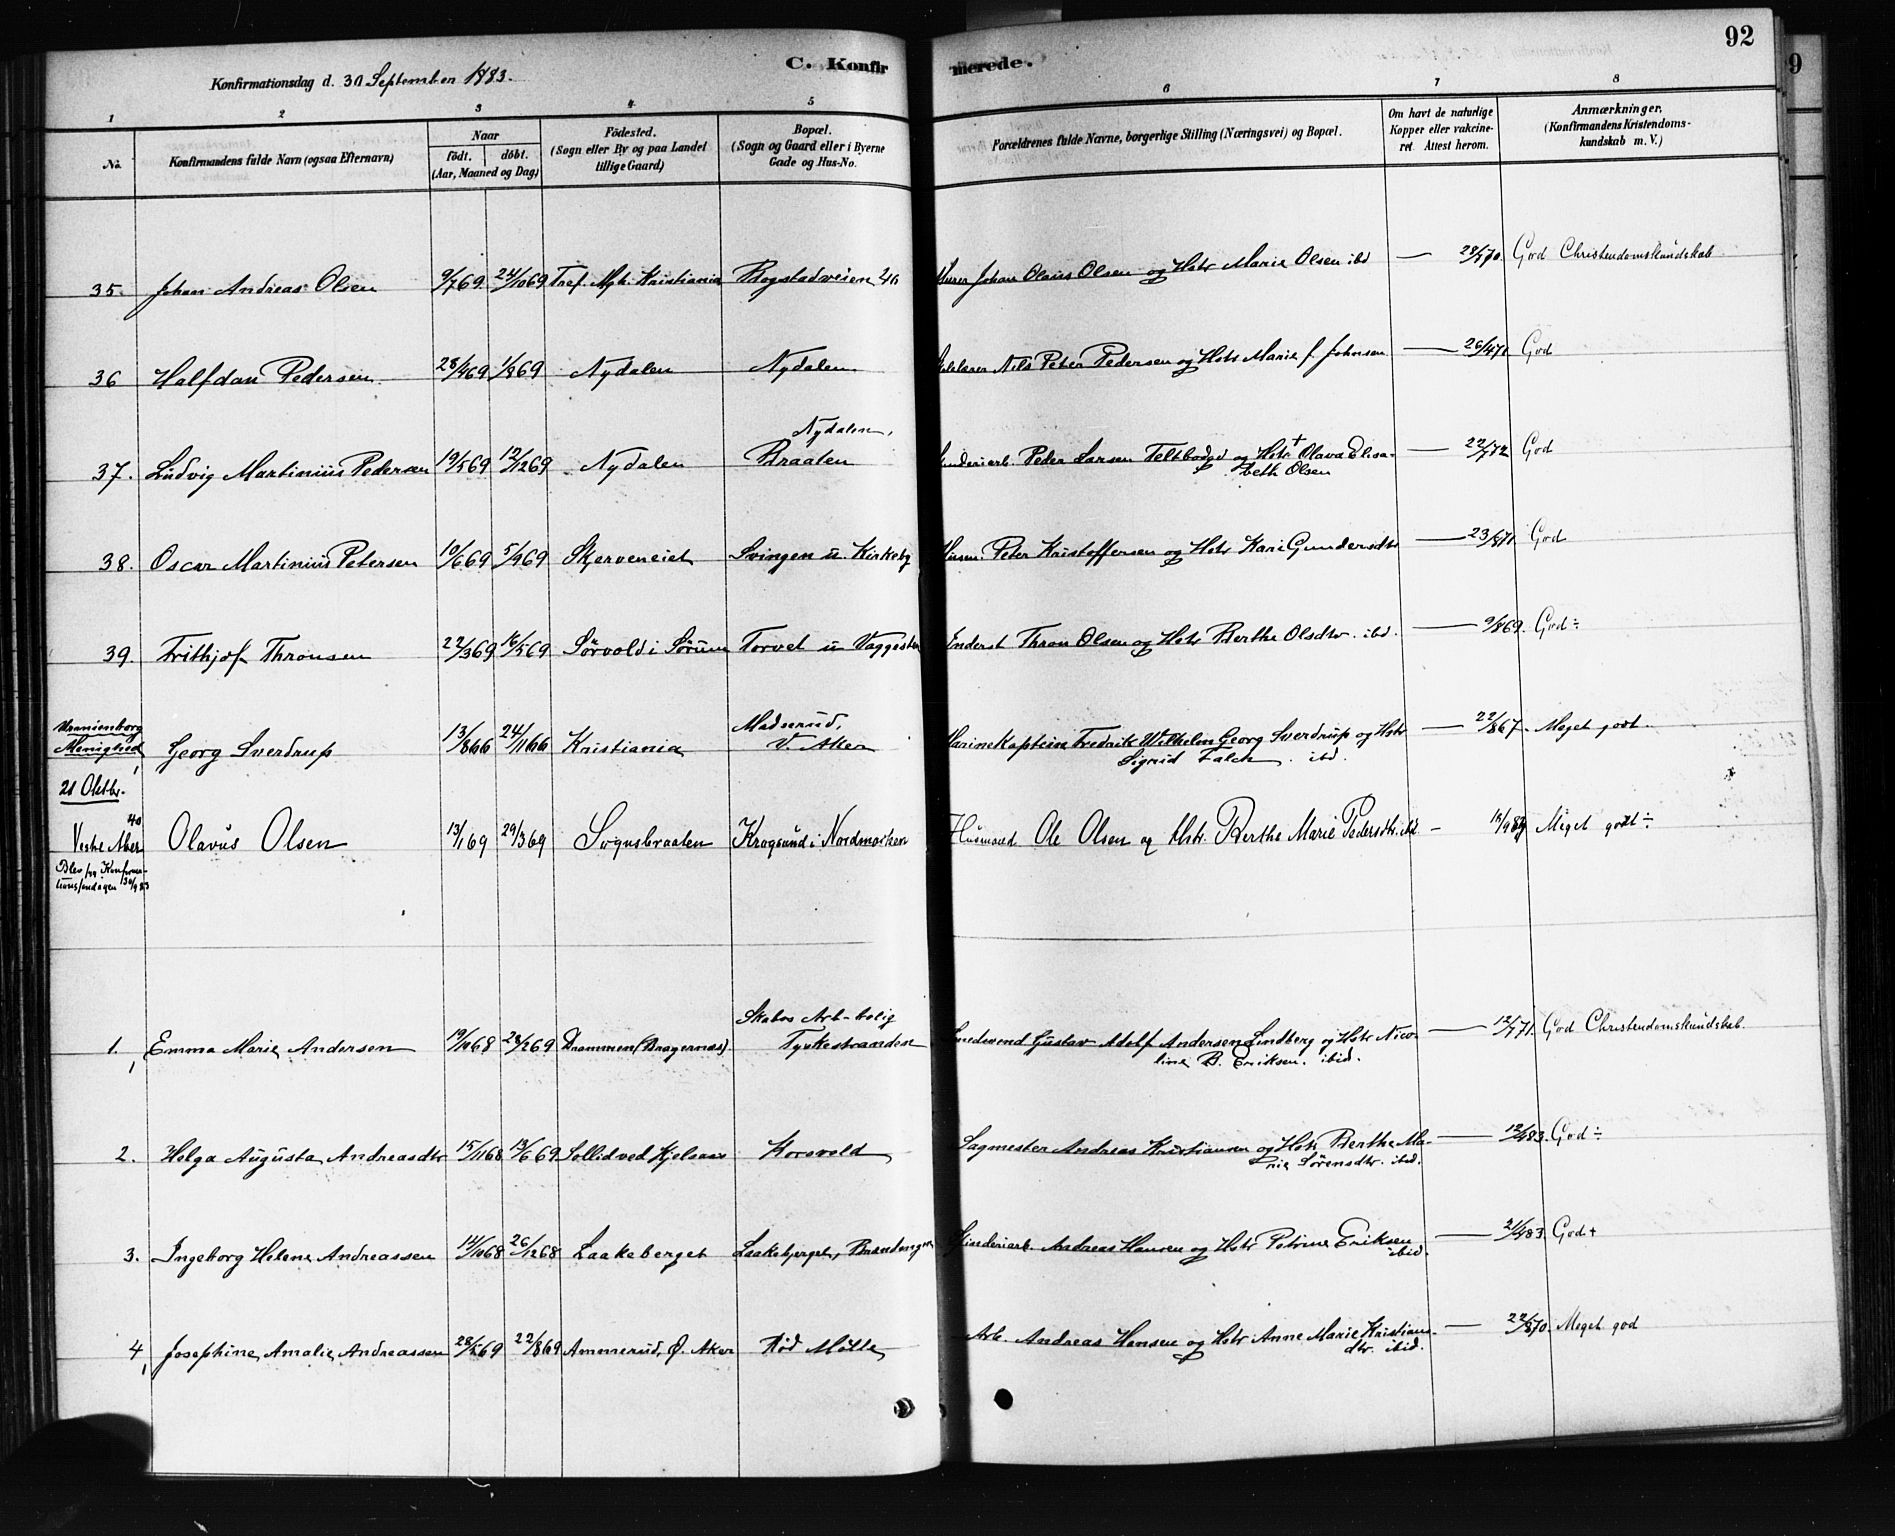 92
C. Konfirmerede.
Konfirmationsdag d. 30 September 1883.
1 2 3 4 5 6 7 8
No. Konfirmandens fulde Navn (ogsaa Efternavn) Naar födt. döbt. (Aar, Maaned og Dag) Födested. (Sogn eller By og paa Landet tillige Gaard) Bopæl. (Sogn og Gaard eller i Byerne Gade og Hus-No. Forældrenes fulde Navne, borgerlige Stilling (Næringsvei) og Bopæl. Om havt de naturlige Kopper eller vakcineret. Attest herom. Anmærkninger. (Konfirmandens Kristendomskundskab m. V.)
35. Johan Andreas Olsen 9/7 69 24/10 69 Tref. Mgh. Kristiania Bogstadveien 40 Murer Johan Olaus Olsen og Hstr Marie Olsen ibd — 28/7 70. God Christendomskundskab
36 Halfdan Pedersen 28/4 69 1/8 69 Nydalen Nydalen Nils Peter Pedersen og Hstr Marie f. Johnsen — 26/4 71 God
Nydalen,
37. Ludvig Martinius Pedersen 19/5 69 12/12 69 Nydalen Braaten Peder Larsen og Hstr + Olava Elisa-
beth Olsen — 22/7 72 God
38. Oscar Martinius Petersen 10/6 69 5/9 69 Skjerveneiet Svingen u. Kirkeby Husm. Peter Kristoffersen og Hstr Kari Gundersdtr — 23/8 71. God
39. Frithjof Thronsen 22/3 69 16/5 69 Sörvold i Sörum Torvet u Vaggesten Thron Olsen og Hstr Berthe Olsdtr. ibd. — 9/8 69. God ÷
Uranienborg
Menighed Georg Sverdrup 13/8 66 24/11 66 Kristiania Madserud,
V. Aker Marinekaptein Fredrik Wilhelm Georg Sverdrup og Hstr
Sigrid Falch. ibd. — 22/8 67. Meget godt.
21 Oktbr.
40
Vestre Aker Olavus Olsen 13/1 69 29/3 69 Sognsbraaten Kragsund i Nordmarken Husmand Ole Olsen og Hstr. Berthe Marie Pedersdtr. ibd — Meget godt ÷
Blev syg Konfirma-
tionssöndagen 30/9 83
Skabos Arb-bolig
1. Emma Marie Andersen 19/10 68 28/2 69 Drammen (Bragernæs). Tyskestranden Smedsvend Gustav Adolf Andersen Lindberg og Hstr Nico-
line B. Eriksen. ibid. — 12/7 71. God Christendomskundskab.
2. Helga Augusta Andreasdtr 15/11 68 13/6 69 Sollid ved Kjelsaas Korsvold Sagmester Andreas Kristiansen og Hstr Berthe Ma-
rie Sörensdtr. ibid. — 12/4 83. God ÷
3. Ingeborg Helene Andreassen 14/10 68 26/12 68 Laakeberget Laakeberget, Brandengen Spinderiarb. Andreas Hansen og Hstr Petrine Eriksen
ibid. — 21/4 83. God +
4, Josephine Amalie Andreassen 28/5 69 22/8 69 Ammerud, Ö. Aker Röd Mölle Arb. Andreas Hansen og Hstr Anne Marie Kristians-
dtr. ibid. — 22/8 70. Meget god